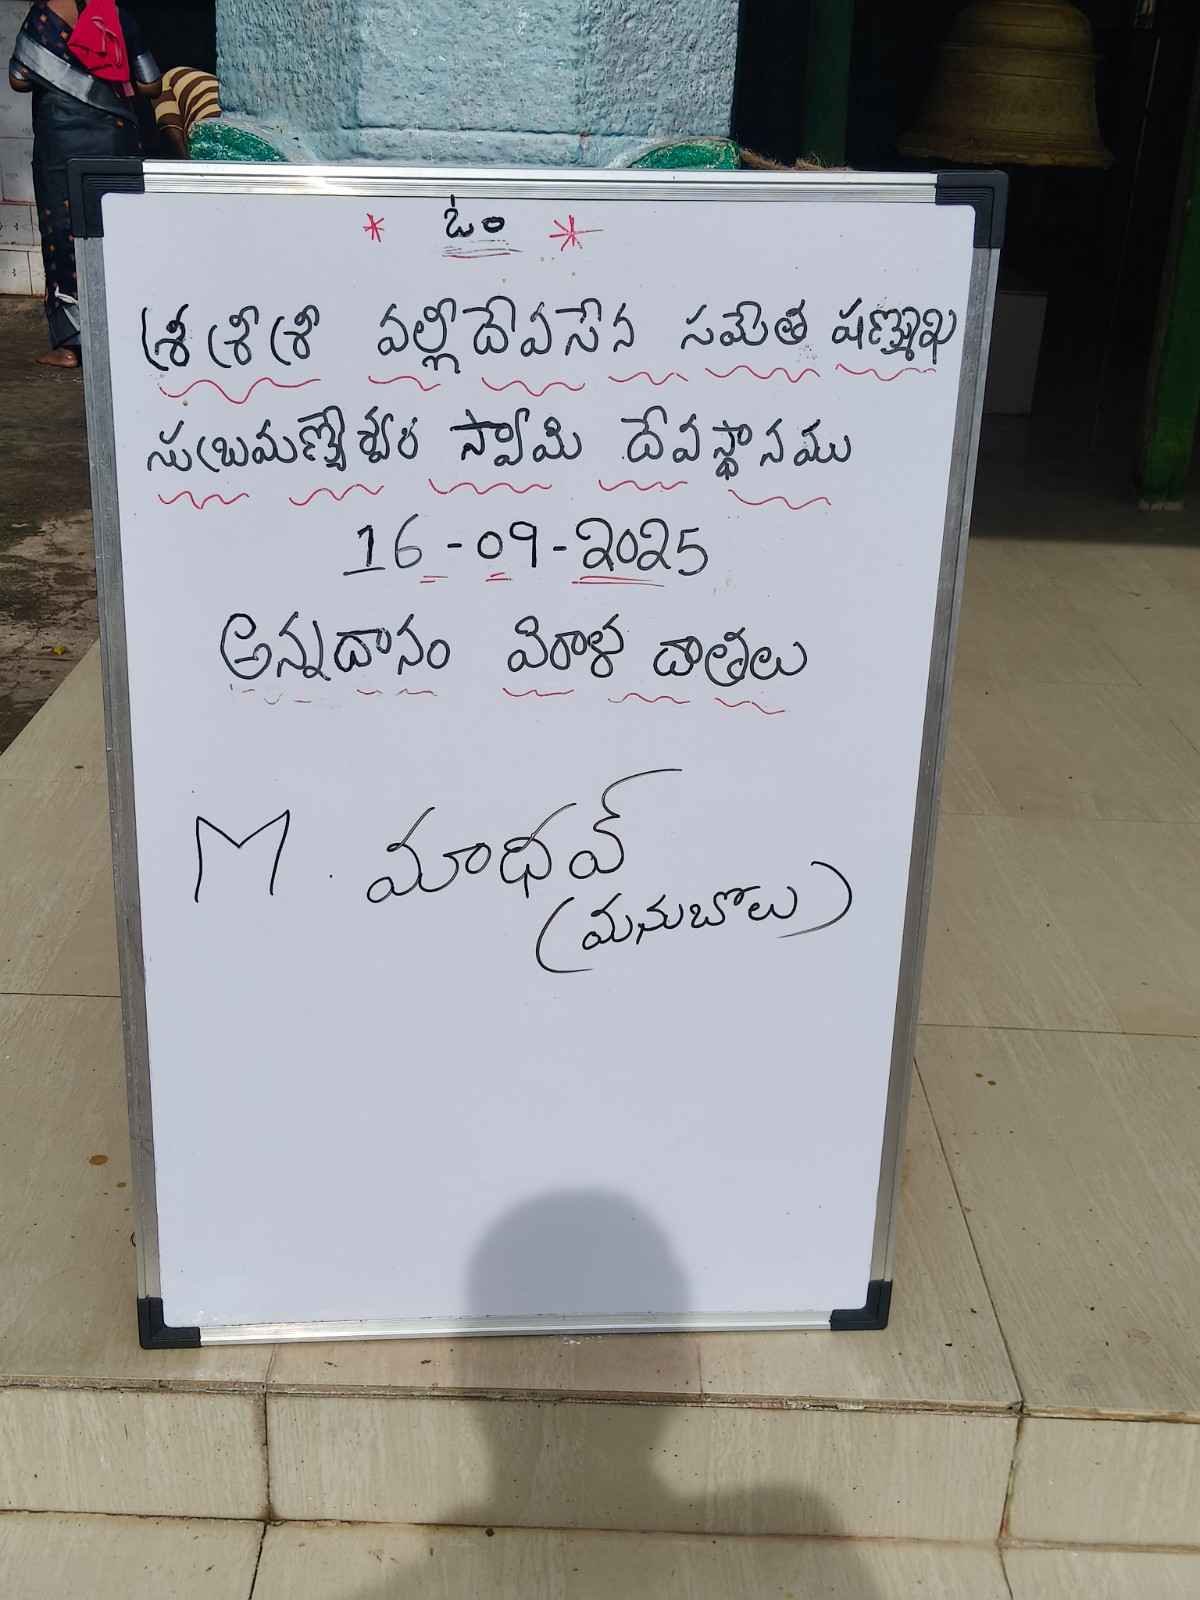 * ఓం *
శ్రీ శ్రీ శ్రీ వల్లీదేవసేన సమేత షణ్ముఖ
సుబ్రమణ్యేశ్వర స్వామి దేవస్థానము
16-09-2025
అన్నదానం విరాళ దాతలు
M. మాధవ్
(మనుబోలు)